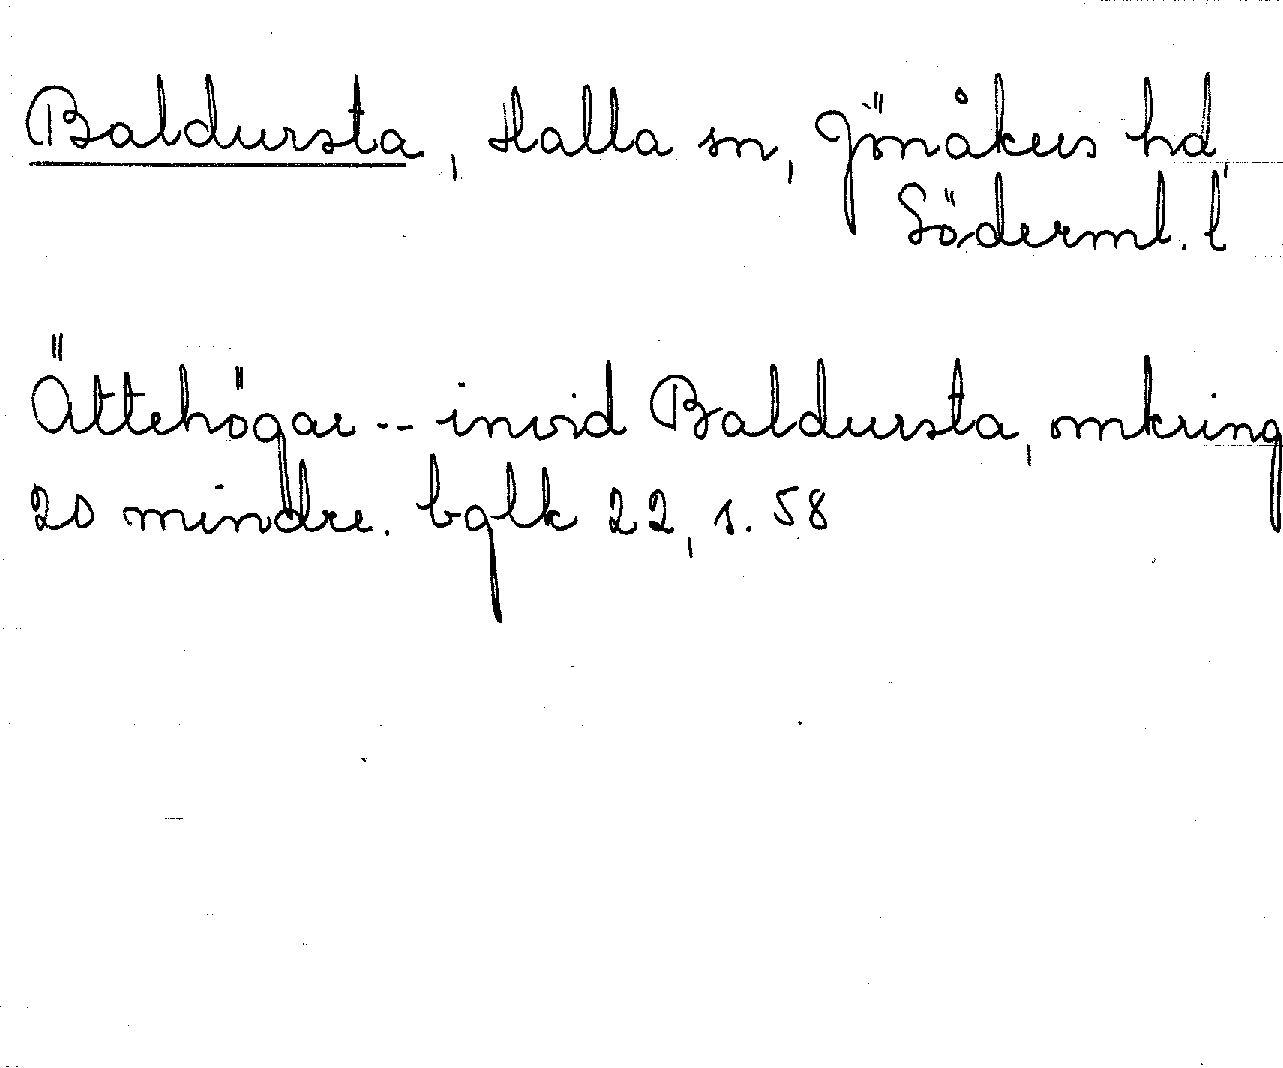 Baldursta, Halla sn, Jönåkers hd,
Söderml. l
Ättehögar -- invid Baldursta, omkring
20 mindre. bglk 22, s. 58